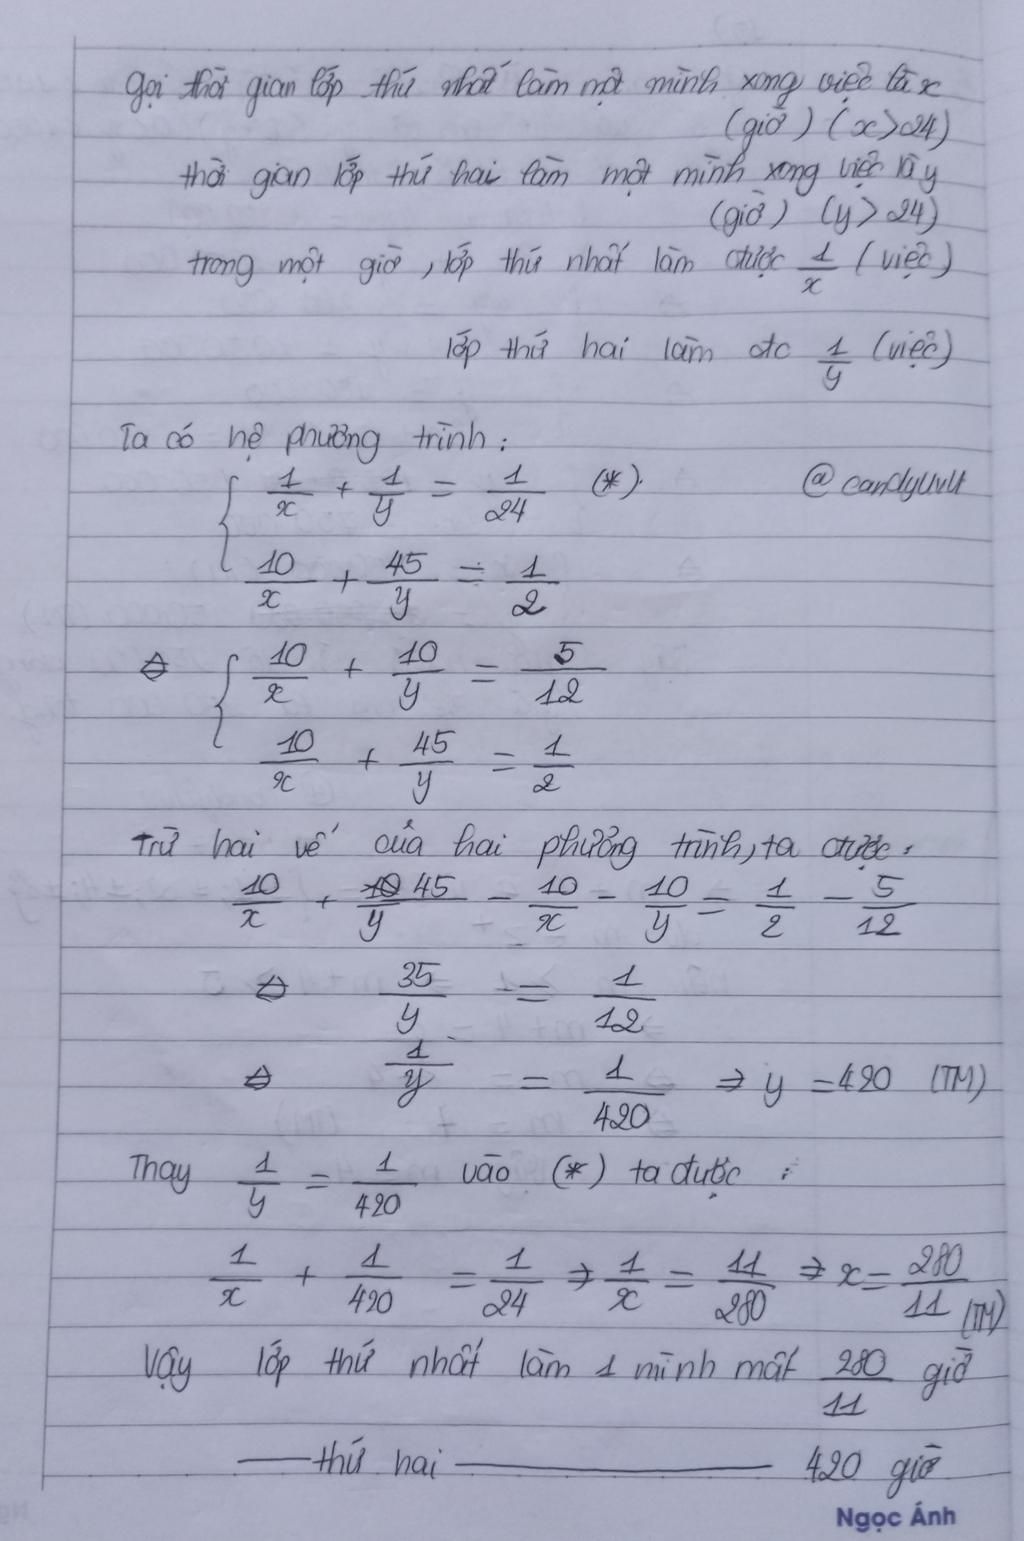 Gọi thời gian lớp thứ nhất làm một mình xong việc là x
(giờ) (x>24)
thời gian lớp thứ hai làm một mình xong việc là y
(giờ) (y>24)
trong một giờ, lớp thứ nhất làm được 1/x (việc)
lớp thứ hai làm đc 1/y (việc)
Ta có hệ phương trình:
{ 1/x + 1/y = 1/24 (*)
@candyuvu
10/x + 45/y = 1/2
⇔ { 10/x + 10/y = 5/12
10/x + 45/y = 1/2
Trừ hai vế của hai phương trình, ta được:
10/x + 45/y - 10/x - 10/y = 1/2 - 5/12
⇔ 35/y = 1/12
⇔ 1/y = 1/420 ⇒ y = 420 (TM)
Thay 1/y = 1/420 vào (*) ta được:
1/x + 1/420 = 1/24 ⇒ 1/x = 11/280 ⇒ x = 280/11 (TM)
Vậy lớp thứ nhất làm 1 mình mất 280/11 giờ
—— thứ hai —————— 420 giờ
Ngọc Ánh